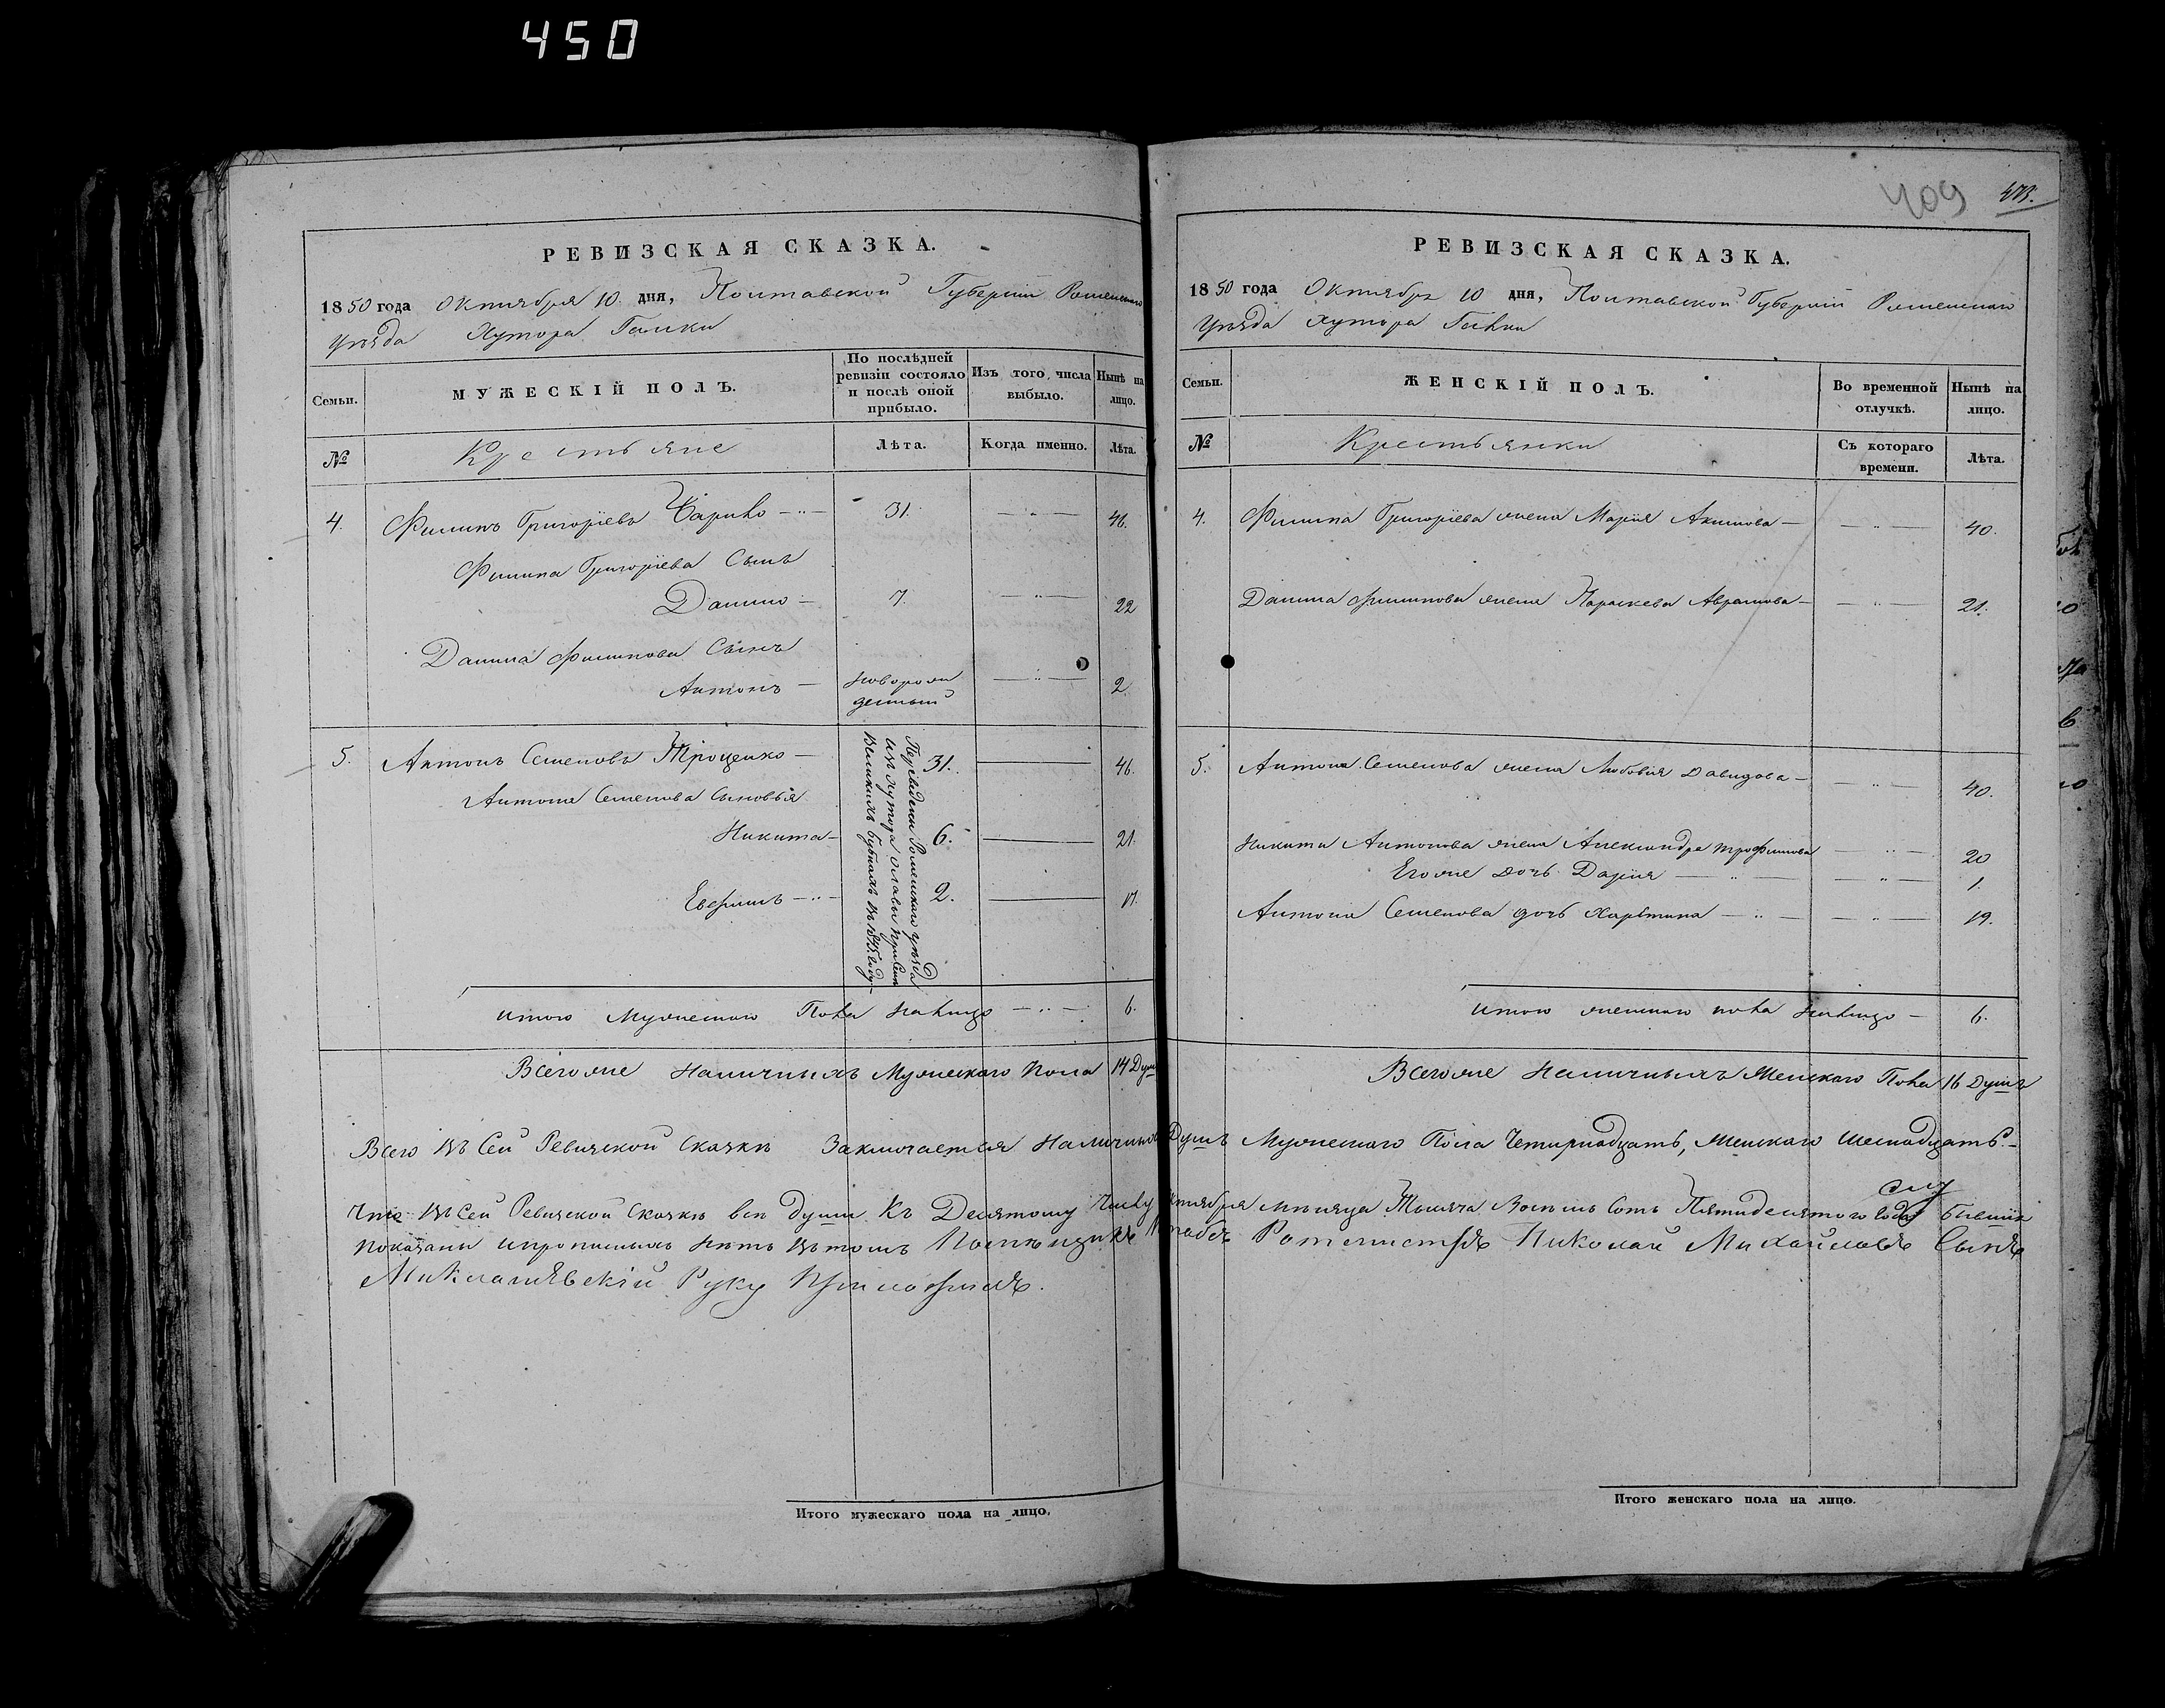 450
РЕВИЗСКАЯ СКАЗКА.
1850 года Октября 10 дня, Полтавской Губерніи Роменскаго
Уѣзда Хутора Галки
Семьи.
МУЖЕСКІЙ ПОЛЪ.
По послѣдней ревизіи состояло и послѣ оной прибыло.
Изъ того числа выбыло.
Нынѣ на лицо.
№
Крестьяне
Лѣта.
Когда именно.
Лѣта.
4. Филипъ Григорьевъ 31. 46.
Филипа Григорьева Сынъ
Данило 7. 22
Данила Филипова Сынъ
Антонъ новорожденный 2.
5. Антонъ Семеновъ Троценко 31. 46.
Антона Семенова сыновья
Никита 6. 21.
Евфимъ 2. 17.
Переведены Роменскаго уѣзда
изъ хутора
Великихъ Бубнахъ въ 1845 году
итого Мужескаго Пола налицо 6.
Всего же Наличныхъ Мужескаго Пола 14 Душ
409
473.
РЕВИЗСКАЯ СКАЗКА.
1850 года Октября 10 дня, Полтавской Губерніи Роменскаго
Уѣзда Хутора Галки
Семьи.
ЖЕНСКІЙ ПОЛЪ.
Во временной отлучкѣ.
Нынѣ на лицо.
№
Крестьянки
Съ котораго времени.
Лѣта.
4. Филипа Григорьева жена Марія Акимова 40.
Данила Филипова жена Параскева Аврамова 21.
5. Антона Семенова жена Любовья Давидова 40.
Никиты Антонова жена Александра Трофимова 20
Его же дочь Дарія 1.
Антона Семенова дочь Харытина 19.
итого женскаго пола налицо 6.
Всего же Наличныхъ Женскаго Пола 16 душъ
Всего въ Сей Ревизской Сказкѣ Заключается Наличныхъ Душъ Мужескаго Пола Четырнадцать, Женскаго шестнадцать.
Что въ Сей Ревизской Сказкѣ всѣ души къ Десятому Числу Октября мѣсяца Тысяча Восемь Сотъ Пятидесятого года бывшія
показаны и прописныхъ нѣтъ въ томъ Помѣщикъ Штабсъ Ротмистръ Николай Михайловъ Сынъ
Миклашевскій Руку Приложилъ.
Итого мужескаго пола на лицо.
Итого женскаго пола на лицо.